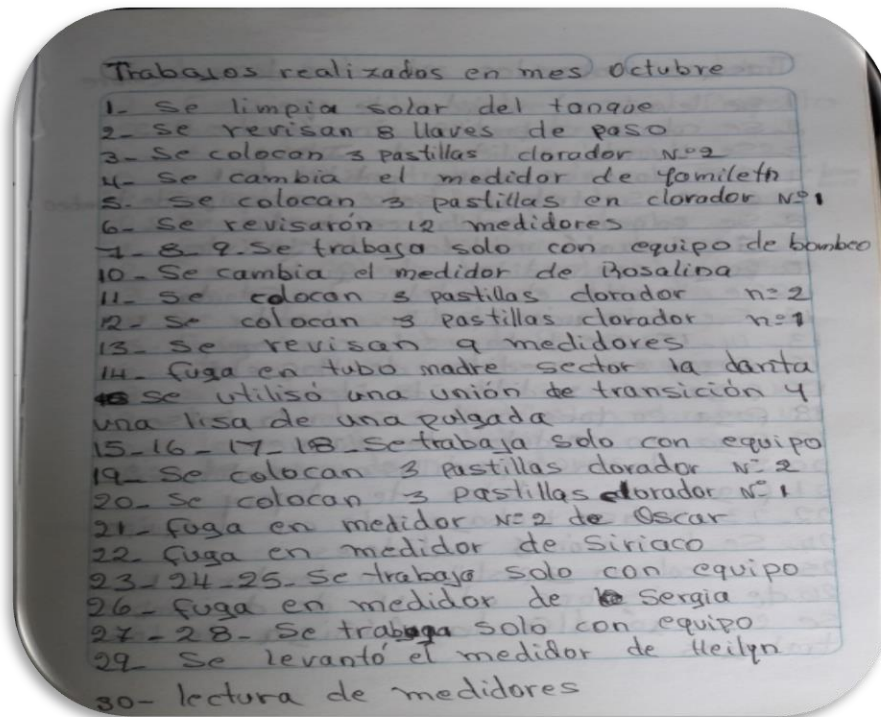 Trabajos realizados en mes octubre
1- Se limpia solar del tanque
2- se revisan 8 llaves de paso
3- Se colocan 3 pastillas clorador Nº2
4- Se cambia el medidor de Yamileth
5. Se colocan 3 pastillas en clorador Nº1
6- Se revisarón 12 medidores
7- 8- 9. Se trabaja solo con equipo de bombeo
10- Se cambia el medidor de Rosalina
11- se colocan 3 pastillas clorador nº2
12- Se colocan 3 pastillas clorador nº1
13- se revisan 9 medidores
14- fuga en tubo madre sector la danta
se utilisó una unión de transición y
una lisa de una pulgada
15-16-17-18-Se trabaja solo con equipo
19- Se colocan 3 pastillas clorador Nº2
20- Se colocan 3 pastillas clorador Nº1
21- fuga en medidor Nº2 de Oscar
22- fuga en medidor de Siriaco
23-24-25- Se trabaja solo con equipo
26- fuga en medidor de Sergia
27-28- Se trabaja solo con equipo
29- Se levantó el medidor de Heilyn
30- lectura de medidores